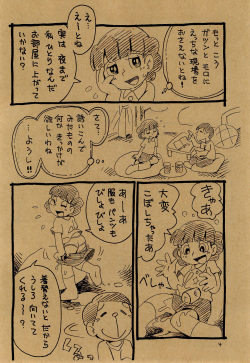 もっとこう
ガツンとモロに
えっちな現場を
おさえないとね!
え…
えーとね
実は夜まで
私ひとりなんだ
お部屋に上がって
いかない?
さて…
誘いこんで
みたものの
何かきっかけが
欲しいわね
…ようし!!
きゃあ
大変
こぼしちゃたあ
べしゃ
あーあ
服もパンツも
びしょびしょ
着替えないとだから
うしろ向いてて
くれる〜?
4